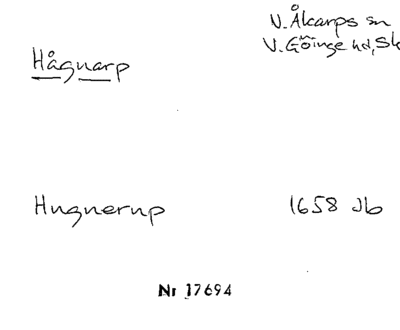 N. Åkarps sn
V. Göinge hd, Sk
Hågnarp
Hugnerup 1658 Jb
Nr 17694